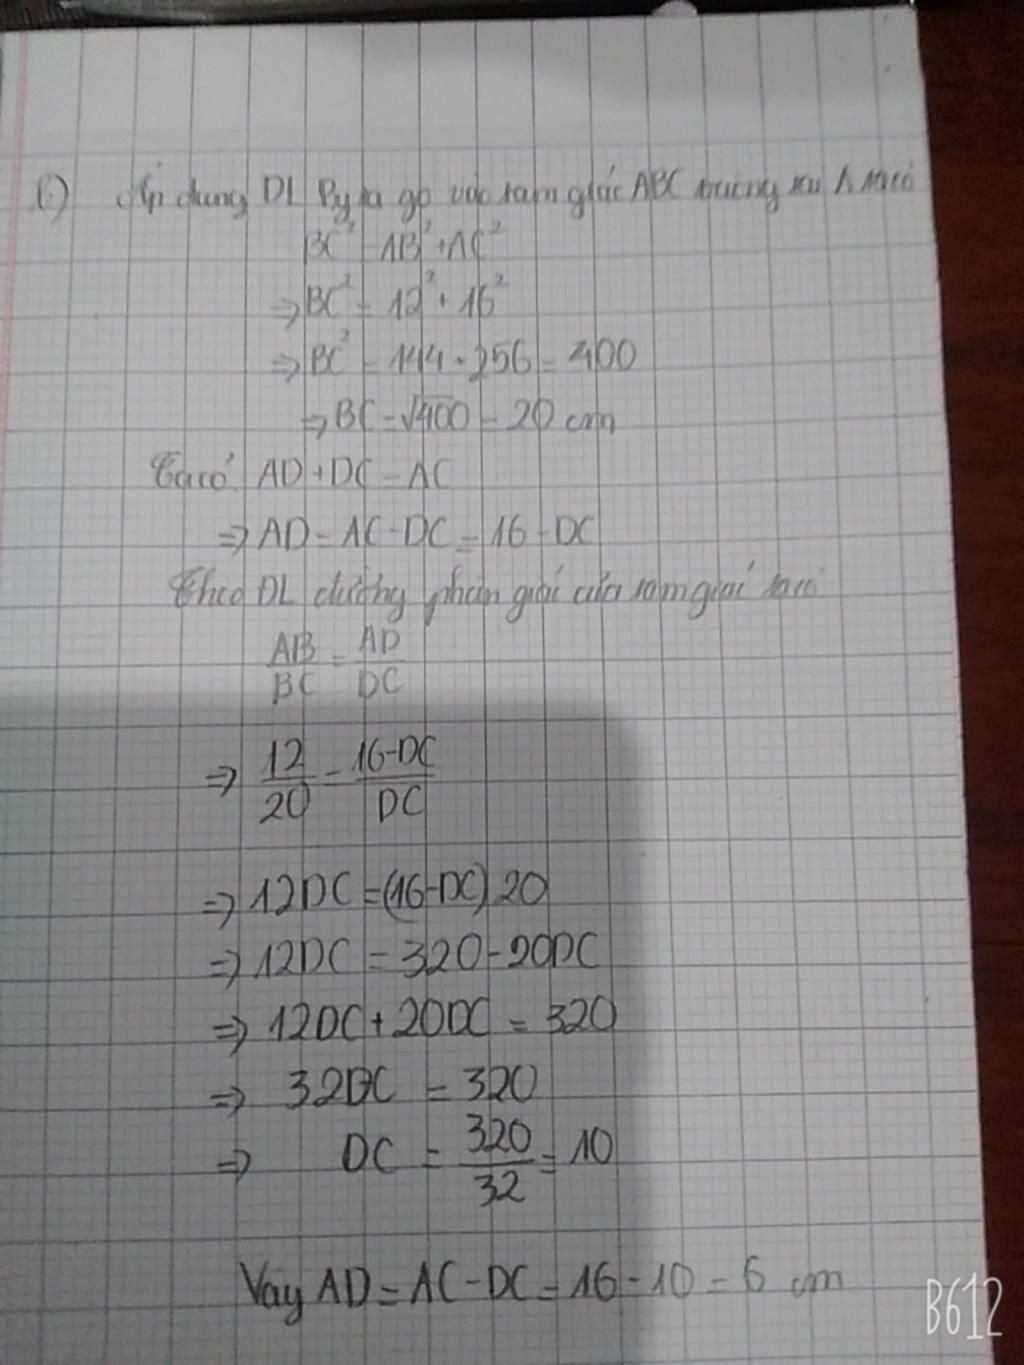 Áp dụng ĐL Pytago vào tam giác ABC vuông tại A ta có
BC² = AB² + AC²
⇒ BC² = 12² + 16²
⇒ BC² = 144 + 256 = 400
⇒ BC = √400 = 20 cm
Ta có: AD + DC = AC
⇒ AD = AC - DC = 16 - DC
Theo ĐL đường phân giác của tam giác ta có
AB/BC = AD/DC
⇒ 12/20 = 16-DC/DC
⇒ 12DC = (16-DC) 20
⇒ 12DC = 320 - 20DC
⇒ 12DC + 20DC = 320
⇒ 32DC = 320
⇒ DC = 320/32 = 10
Vậy AD = AC - DC = 16 - 10 = 6 cm
B612